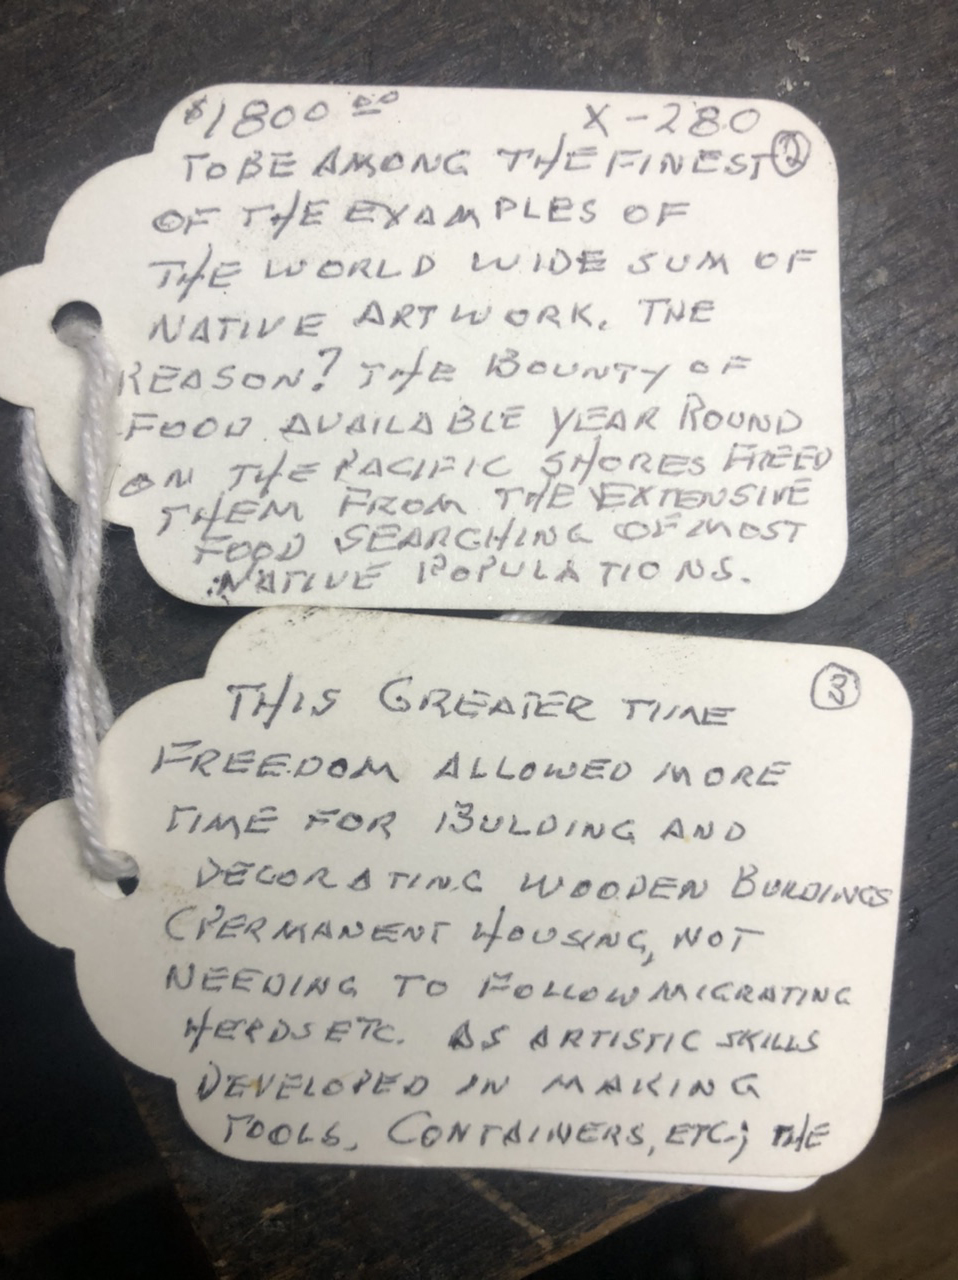 $1800 00 X-280
TO BE AMONG THE FINEST ②
OF THE EXAMPLES OF
THE WORLD WIDE SUM OF
NATIVE ARTWORK. THE
REASON? THE BOUNTY OF
FOOD AVAILABLE YEAR ROUND
ON THE PACIFIC SHORES FREED
THEM FROM THE EXTENSIVE
FOOD SEARCHING OF MOST
NATIVE POPULATIONS.
③
THIS GREATER TIME
FREEDOM ALLOWED MORE
TIME FOR BULDING AND
DECORATING WOODEN BUILDINGS
(PERMANENT HOUSING, NOT
NEEDING TO FOLLOW MIGRATING
HERDS ETC. AS ARTISTIC SKILLS
DEVELOPED IN MAKING
TOOLS, CONTAINERS, ETC.; THE